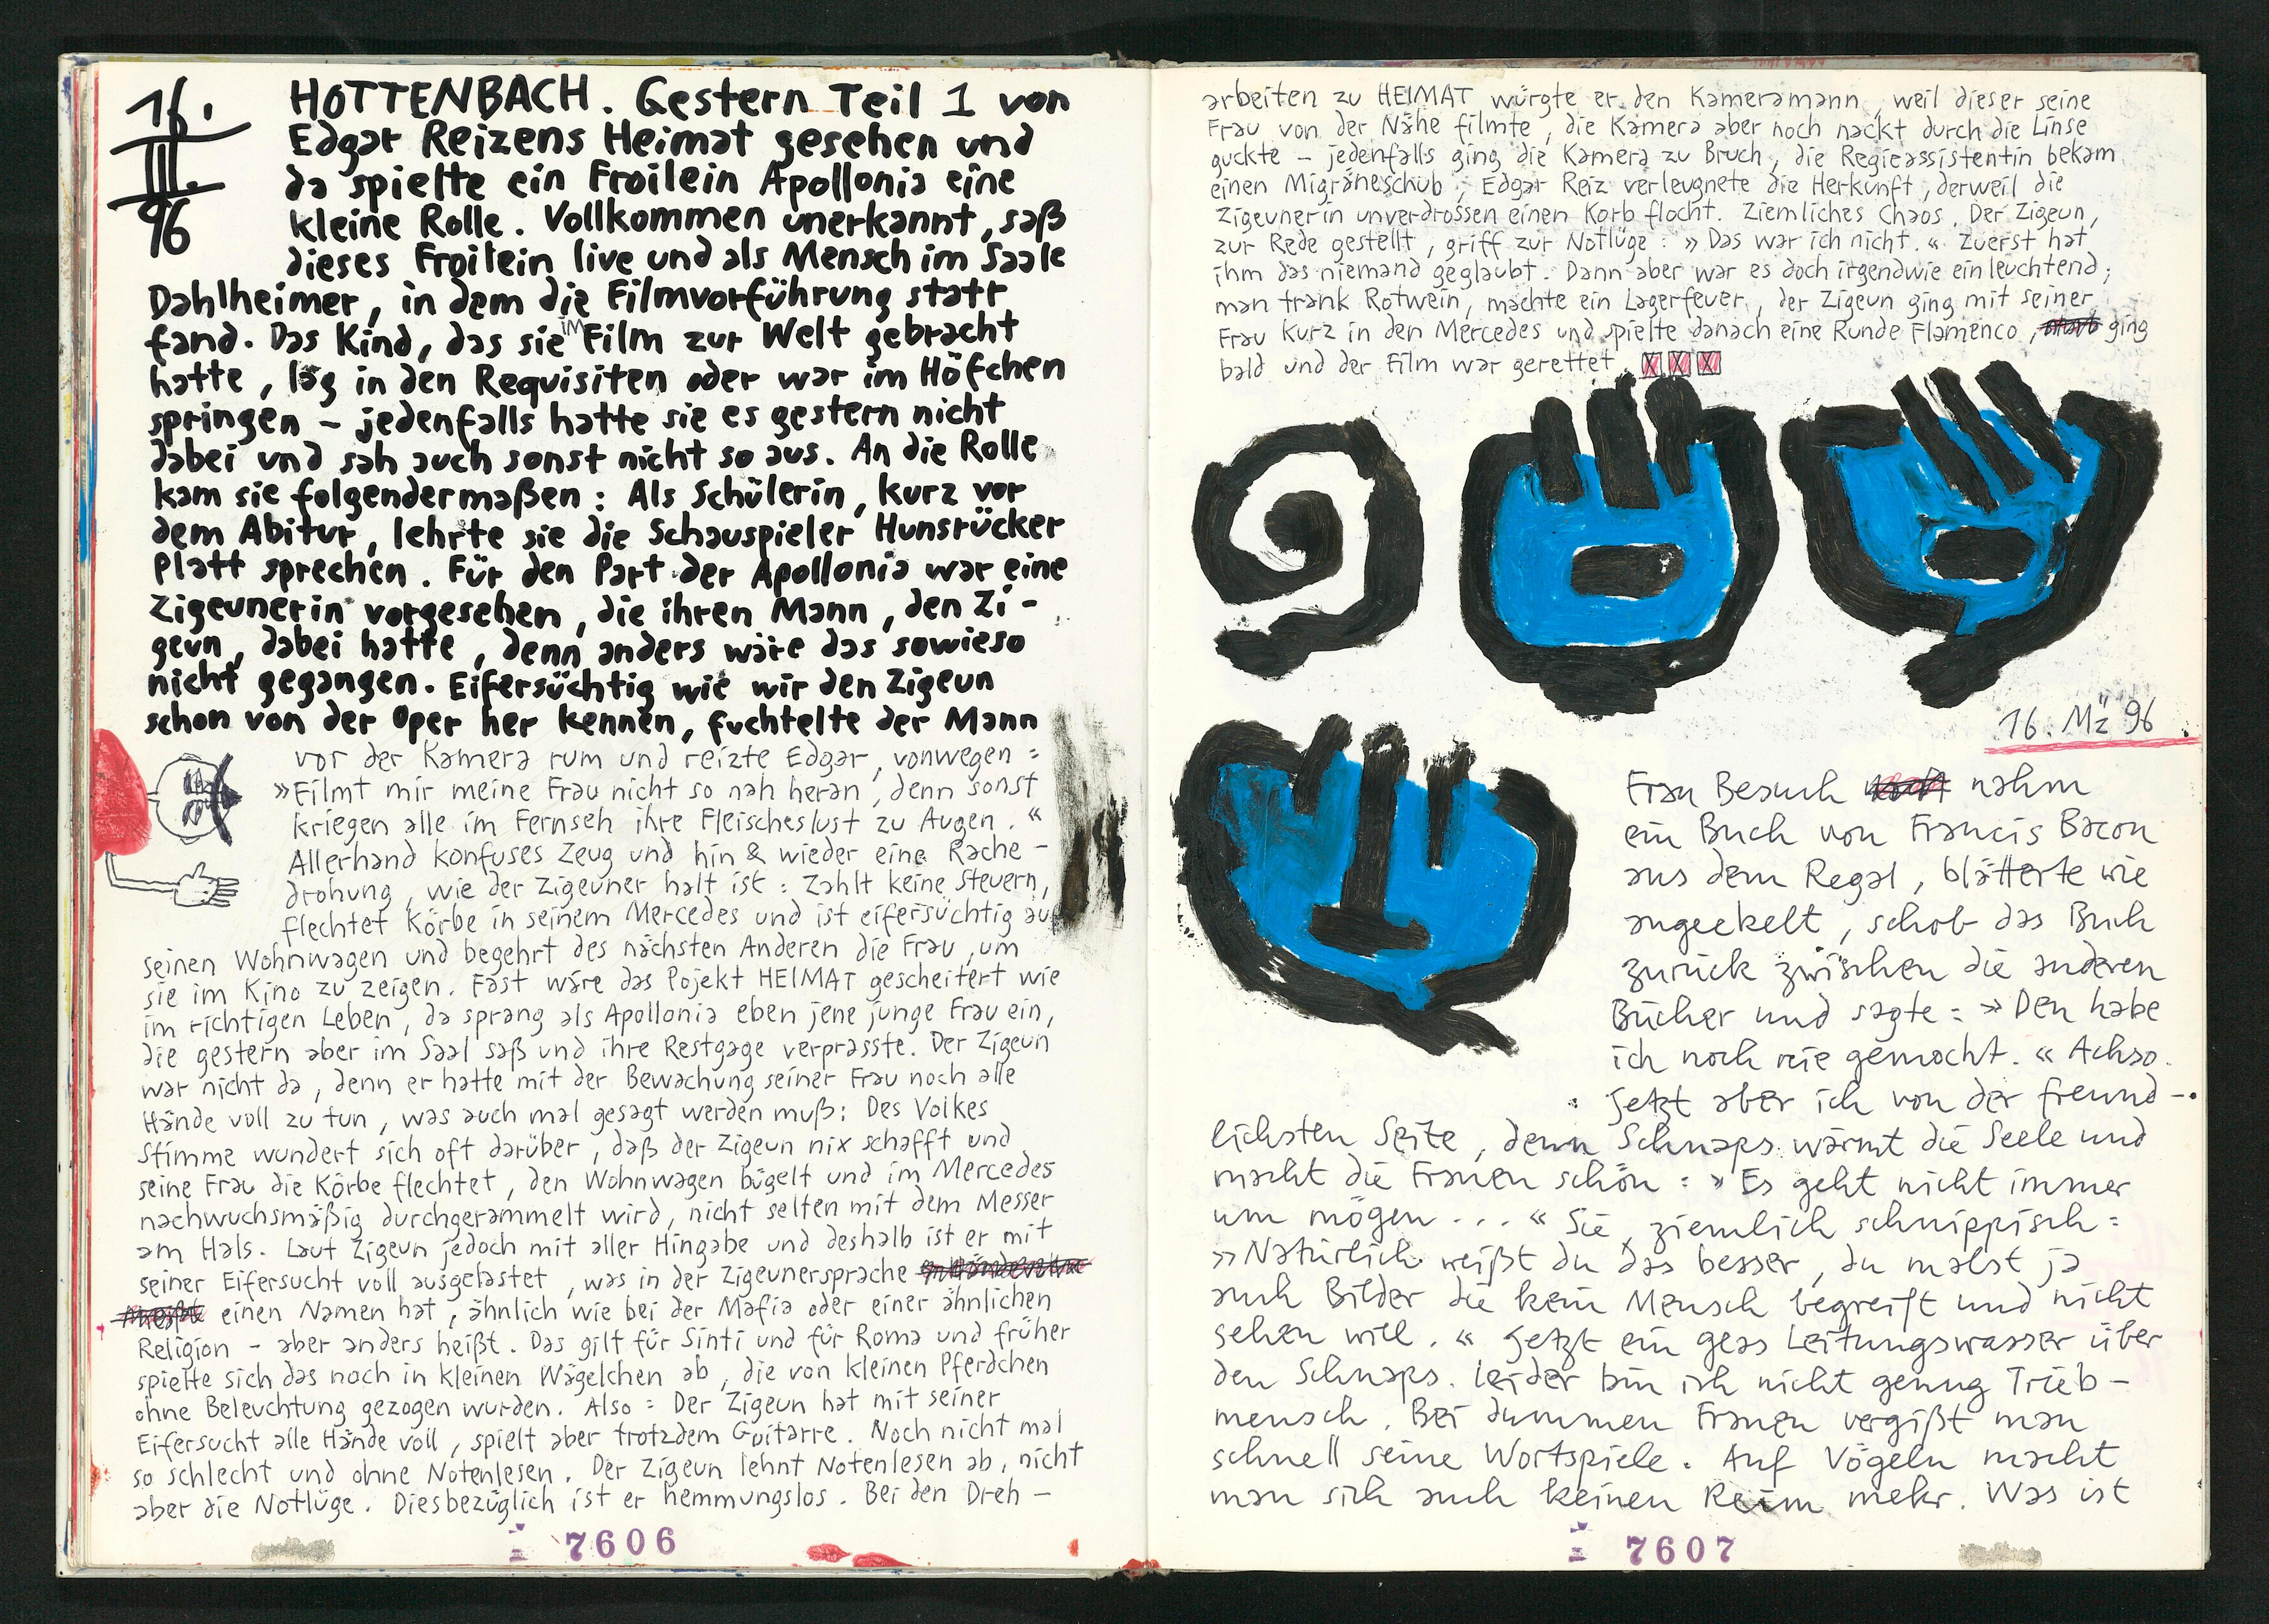 16.
III.
96
HOTTENBACH. Gestern Teil 1 von
Edgar Reizens Heimat gesehen und
da spielte ein Froilein Apollonia eine
kleine Rolle. Vollkommen unerkannt, saß
dieses Froilein live und als Mensch im Saale
Dahlheimer, in dem die Filmvorführung statt
fand. Das Kind, das sie im Film zur Welt gebracht
hatte, lag in den Requisiten oder war im Höfchen
springen – jedenfalls hatte sie es gestern nicht
dabei und sah auch sonst nicht so aus. An die Rolle
kam sie folgendermaßen: Als Schülerin, kurz vor
dem Abitur, lehrte sie die Schauspieler Hunsrücker
Platt sprechen. Für den Part der Apollonia war eine
Zigeunerin vorgesehen, die ihren Mann, den Zi-
geun, dabei hatte, denn anders wäre das sowieso
nicht gegangen. Eifersüchtig wie wir den Zigeun
schon von der Oper her kennen, fuchtelte der Mann
vor der Kamera rum und reizte Edgar, vonwegen:
»Filmt mir meine Frau nicht so nah heran, denn sonst
kriegen alle im Fernseh ihre Fleischeslust zu Augen.«
Allerhand konfuses Zeug und hin & wieder eine Rache-
drohung, wie der Zigeuner halt ist: Zahlt keine Steuern,
flechtet Körbe in seinem Mercedes und ist eifersüchtig auf
seinen Wohnwagen und begehrt des nächsten Anderen die Frau, um
sie im Kino zu zeigen. Fast wäre das Pojekt HEIMAT gescheitert wie
im richtigen Leben, da sprang als Apollonia eben jene junge Frau ein,
die gestern aber im Saal saß und ihre Restgage verprasste. Der Zigeun
war nicht da, denn er hatte mit der Bewachung seiner Frau noch alle
Hände voll zu tun, was auch mal gesagt werden muß: Des Volkes
Stimme wundert sich oft darüber, daß der Zigeun nix schafft und
seine Frau die Körbe flechtet, den Wohnwagen bügelt und im Mercedes
nachwuchsmäßig durchgerammelt wird, nicht selten mit dem Messer
am Hals. Laut Zigeun jedoch mit aller Hingabe und deshalb ist er mit
seiner Eifersucht voll ausgelastet, was in der Zigeunersprache
einen Namen hat, ähnlich wie bei der Mafia oder einer ähnlichen
Religion – aber anders heißt. Das gilt für Sinti und für Roma und früher
spielte sich das noch in kleinen Wägelchen ab, die von kleinen Pferdchen
ohne Beleuchtung gezogen wurden. Also: Der Zigeun hat mit seiner
Eifersucht alle Hände voll, spielt aber trotzdem Guitarre. Noch nicht mal
so schlecht und ohne Notenlesen. Der Zigeun lehnt Notenlesen ab, nicht
aber die Notlüge. Diesbezüglich ist er hemmungslos. Bei den Dreh-
7606
arbeiten zu HEIMAT würgte er den Kameramann, weil dieser seine
Frau von der Nähe filmte, die Kamera aber noch nackt durch die Linse
guckte – jedenfalls ging die Kamera zu Bruch, die Regieassistentin bekam
einen Migräneschub, Edgar Reiz verleugnete die Herkunft, derweil die
Zigeunerin unverdrossen einen Korb flocht. Ziemliches Chaos. Der Zigeun,
zur Rede gestellt, griff zur Notlüge: »Das war ich nicht.« Zuerst hat
ihm das niemand geglaubt. Dann aber war es doch irgendwie einleuchtend;
man trank Rotwein, machte ein Lagerfeuer, der Zigeun ging mit seiner
Frau kurz in den Mercedes und spielte danach eine Runde Flamenco, ging
bald und der Film war gerettet. XXX
16. Mz 96
Frau Besuch nahm
ein Buch von Francis Bacon
aus dem Regal, blätterte wie
angeekelt, schob das Buch
zurück zwischen die anderen
Bücher und sagte: »Den habe
ich noch nie gemocht.« Achso.
Jetzt aber ich von der freund-
lichsten Seite, denn Schnaps wärmt die Seele und
macht die Frauen schön: »Es geht nicht immer
um mögen...« Sie, ziemlich schnippisch:
»Natürlich weißt du das besser, du malst ja
auch Bilder die kein Mensch begreift und nicht
sehen will.« Jetzt ein glas Leitungswasser über
den Schnaps. Leider bin ich nicht genug Trieb-
mensch. Bei dummen Frauen vergißt man
schnell seine Wortspiele. Auf Vögeln macht
man sich auch keinen Reim mehr. Was ist
7607